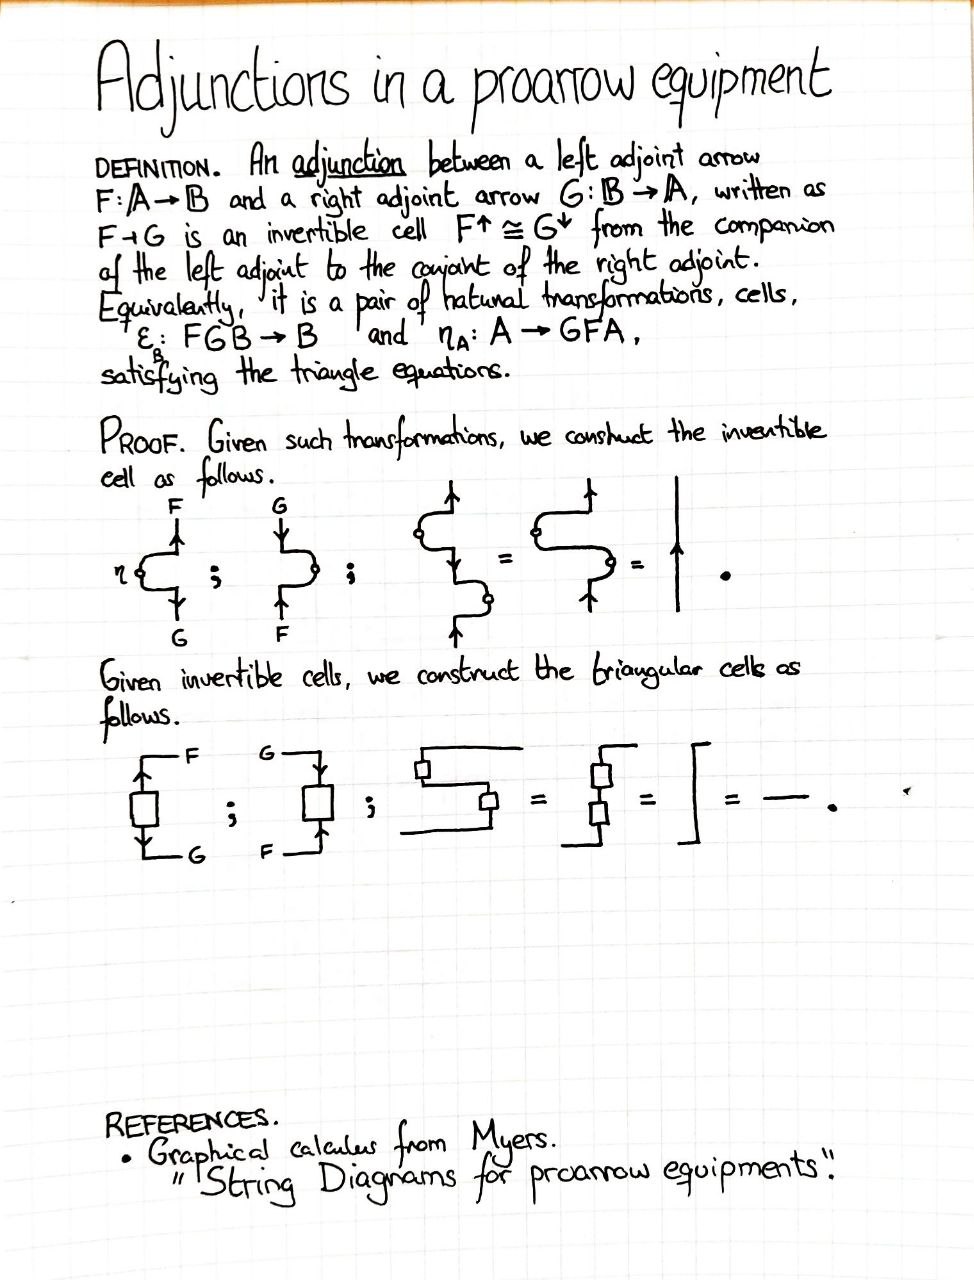 Adjunctions in a proarrow equipment
DEFINITION. An adjunction between a left adjoint arrow
F: 𝔸 → 𝔹 and a right adjoint arrow G: 𝔹 → 𝔸, written as
F ⊣ G is an invertible cell F↑ ≅ G↓ from the companion
of the left adjoint to the conjoint of the right adjoint.
Equivalently, it is a pair of natural transformations, cells,
ε_B: FGB → B and η_A: A → GFA,
satisfying the triangle equations.
PROOF. Given such transformations, we construct the invertible
cell as follows.
F G
η ; ; = = .
G F
Given invertible cells, we construct the triangular cells as
follows.
F G
; ; = = = — .
G F
REFERENCES.
• Graphical calculus from Myers.
"String Diagrams for proarrow equipments".